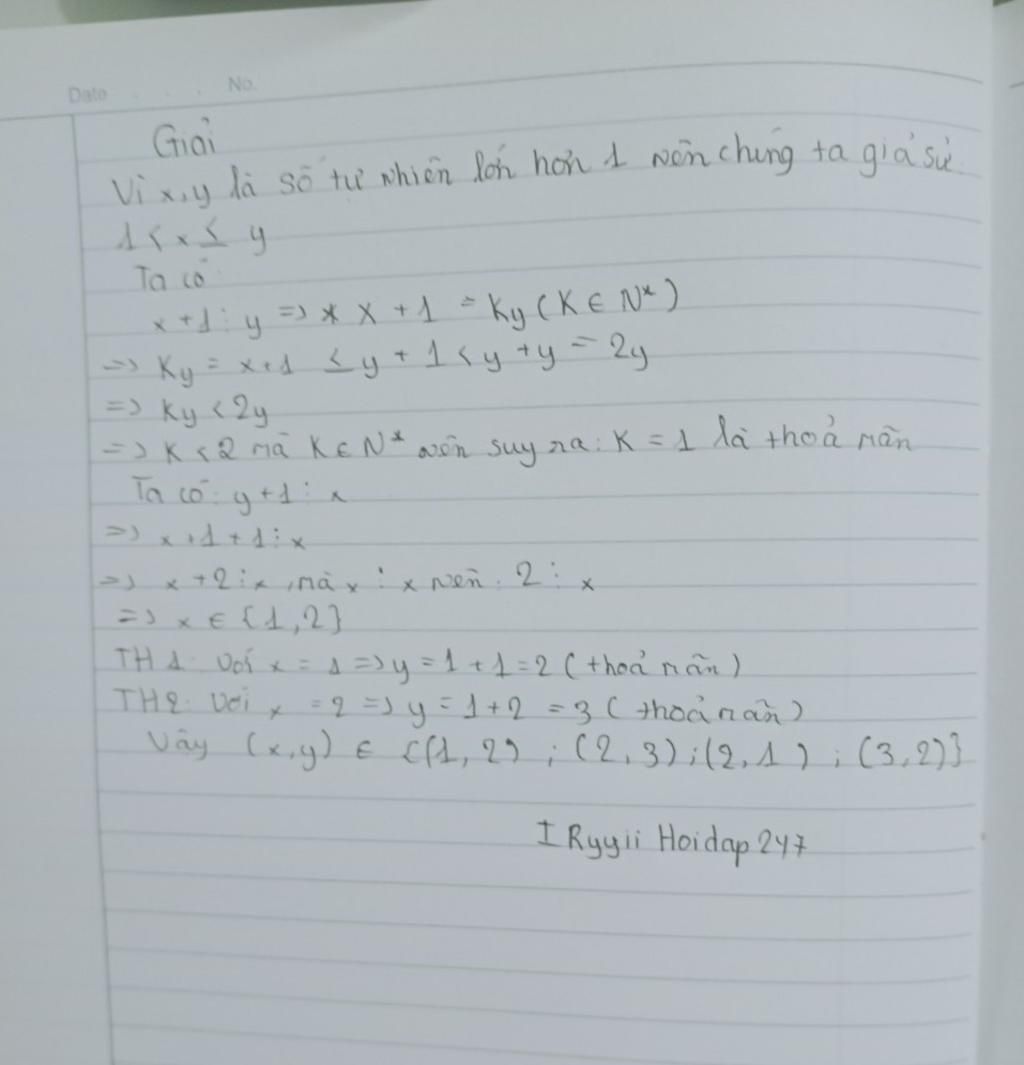 Date . . . No.
Giải
Vì x,y là số tự nhiên lớn hơn 1 nên chúng ta giả sử
1 < x ≤ y
Ta có
x + 1 ⋮ y => x X + 1 = Ky (K ∈ N*)
=> Ky = x+1 ≤ y + 1 < y + y = 2y
=> Ky < 2y
=> K < 2 mà K ∈ N* nên suy ra: K = 1 là thoả mãn
Ta có: y + 1 ⋮ x
=> x + 1 + 1 ⋮ x
=> x + 2 ⋮ x, mà x ⋮ x nên 2 ⋮ x
=> x ∈ {1, 2}
TH1: Với x = 1 => y = 1 + 1 = 2 (thoả mãn)
TH2: Với x = 2 => y = 1 + 2 = 3 (thoả mãn)
Vây (x,y) ∈ {(1, 2) ; (2, 3) ; (2, 1) ; (3, 2)}
I Ryyii Hoidap 247